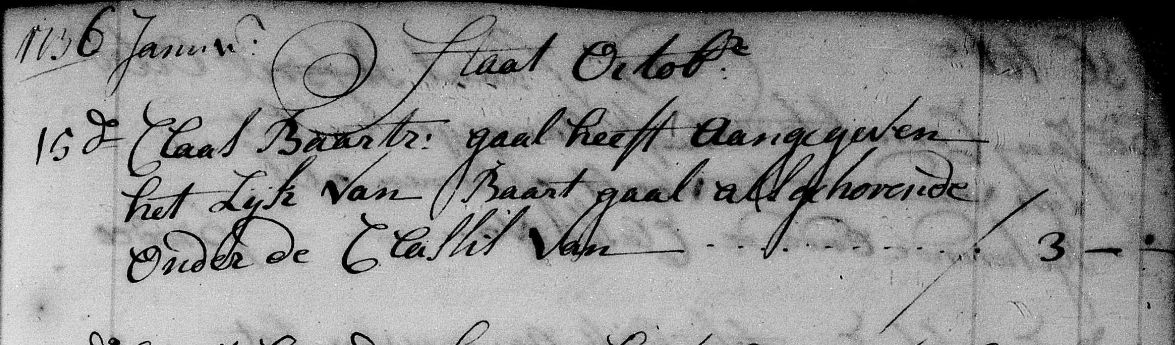 1736 Januw: Staat Octobr:
15 do Claas Baartr: gaal heeft Aangegeven
het Lijk van Baart gaal: als gehorende
onder de Classis van - - . . . . . . . . . . 3 - -